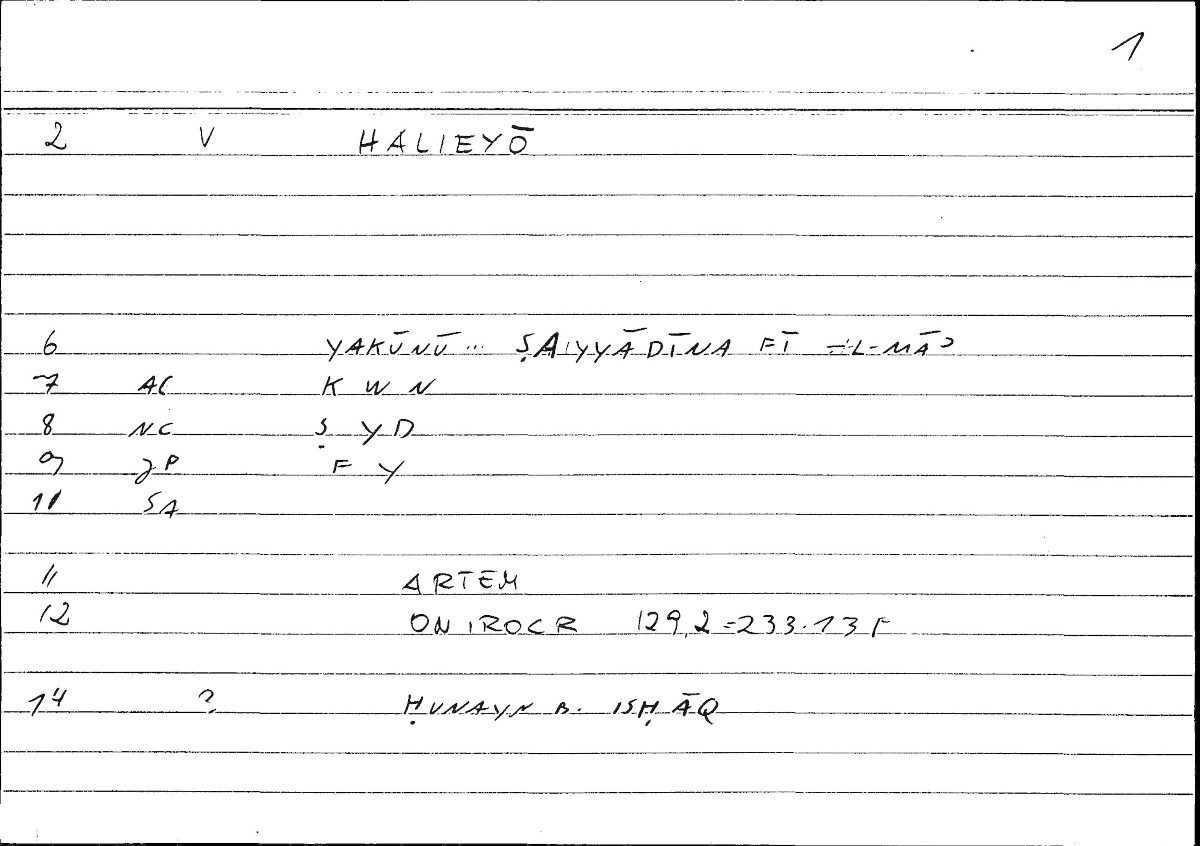 1
2 V HALIEYŌ
6 YAKŪNŪ ... ṢAIYYĀDĪNA FĪ -L-MĀʾ
7 AC K W N
8 NC Ṣ Y D
9 JP F Y
10 SA
11 ARTEM
12 ONIROCR 129,2=233.13 F
14 ? ḤUNAYN B. ISḤĀQ